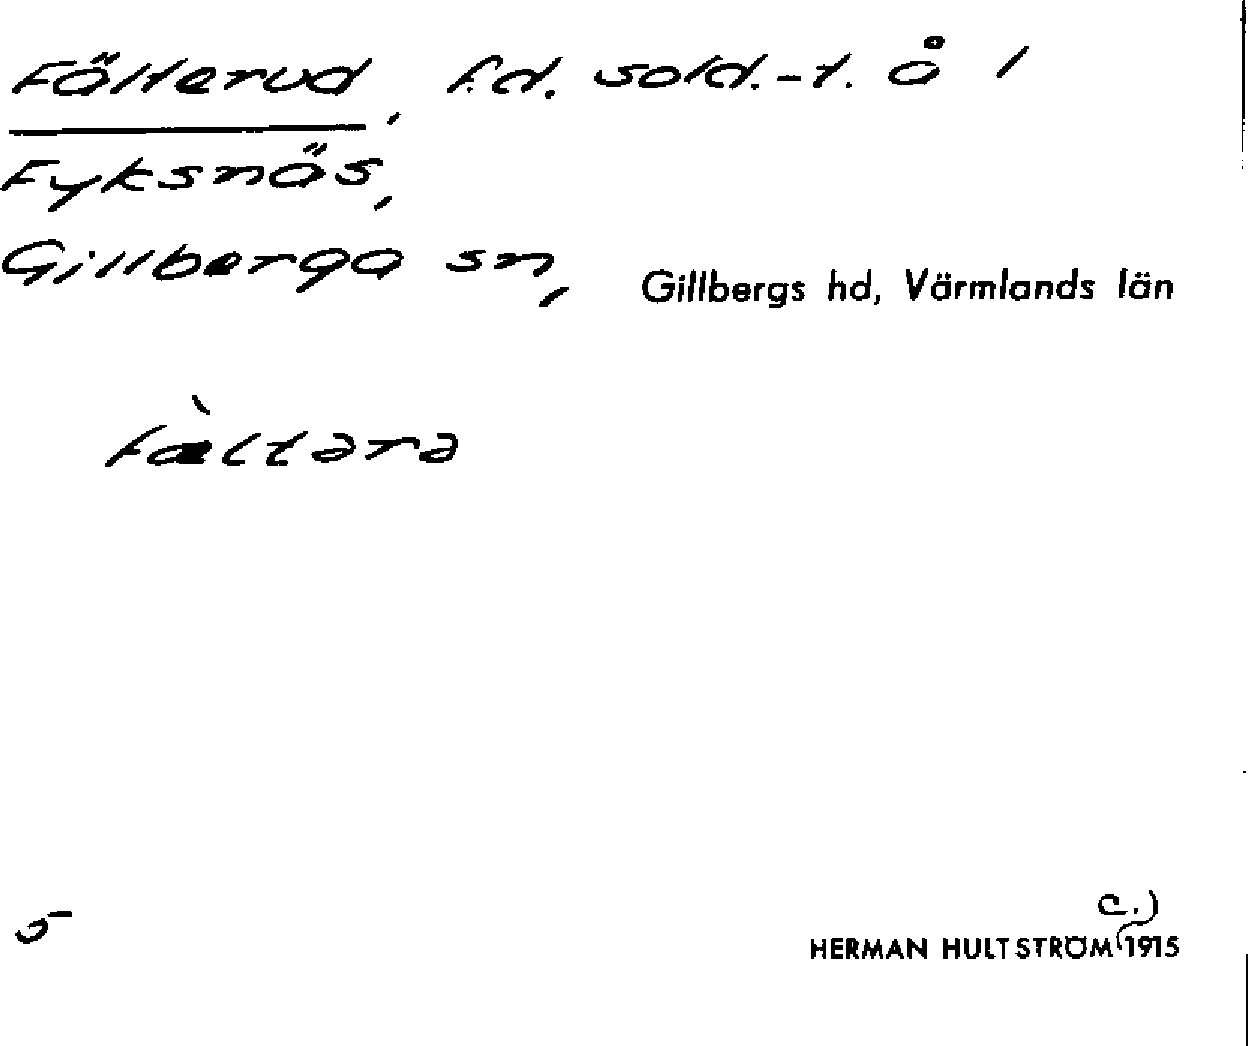 Fälterud, f.d. sold.-t. å 1
Fyksnäs,
Gillberga sn, Gillbergs hd, Värmlands län
fæ̀ltərə
5
c.)
HERMAN HULTSTRÖM 1915